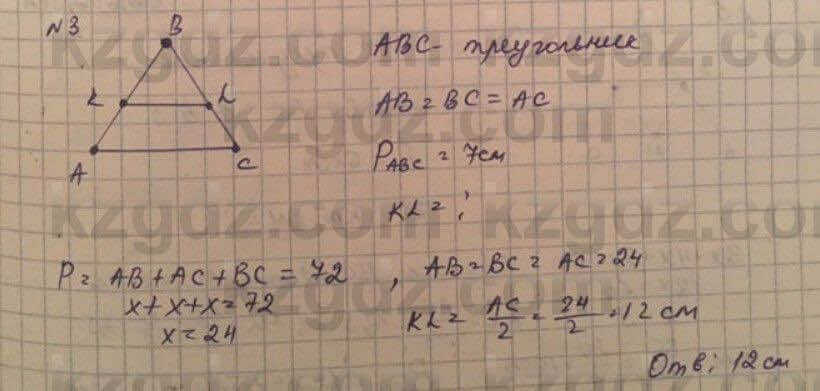 №3
B
K L
A C
ABC - треугольник
AB = BC = AC
P ABC = 7см
KL = ?
P = AB + AC + BC = 72 , AB = BC = AC = 24
x + x + x = 72
x = 24
KL = AC/2 = 24/2 = 12 см
Отв: 12 см
kzgdz.com kzgdz.com
kzgdz.com
kzgdz.com kzgdz.com